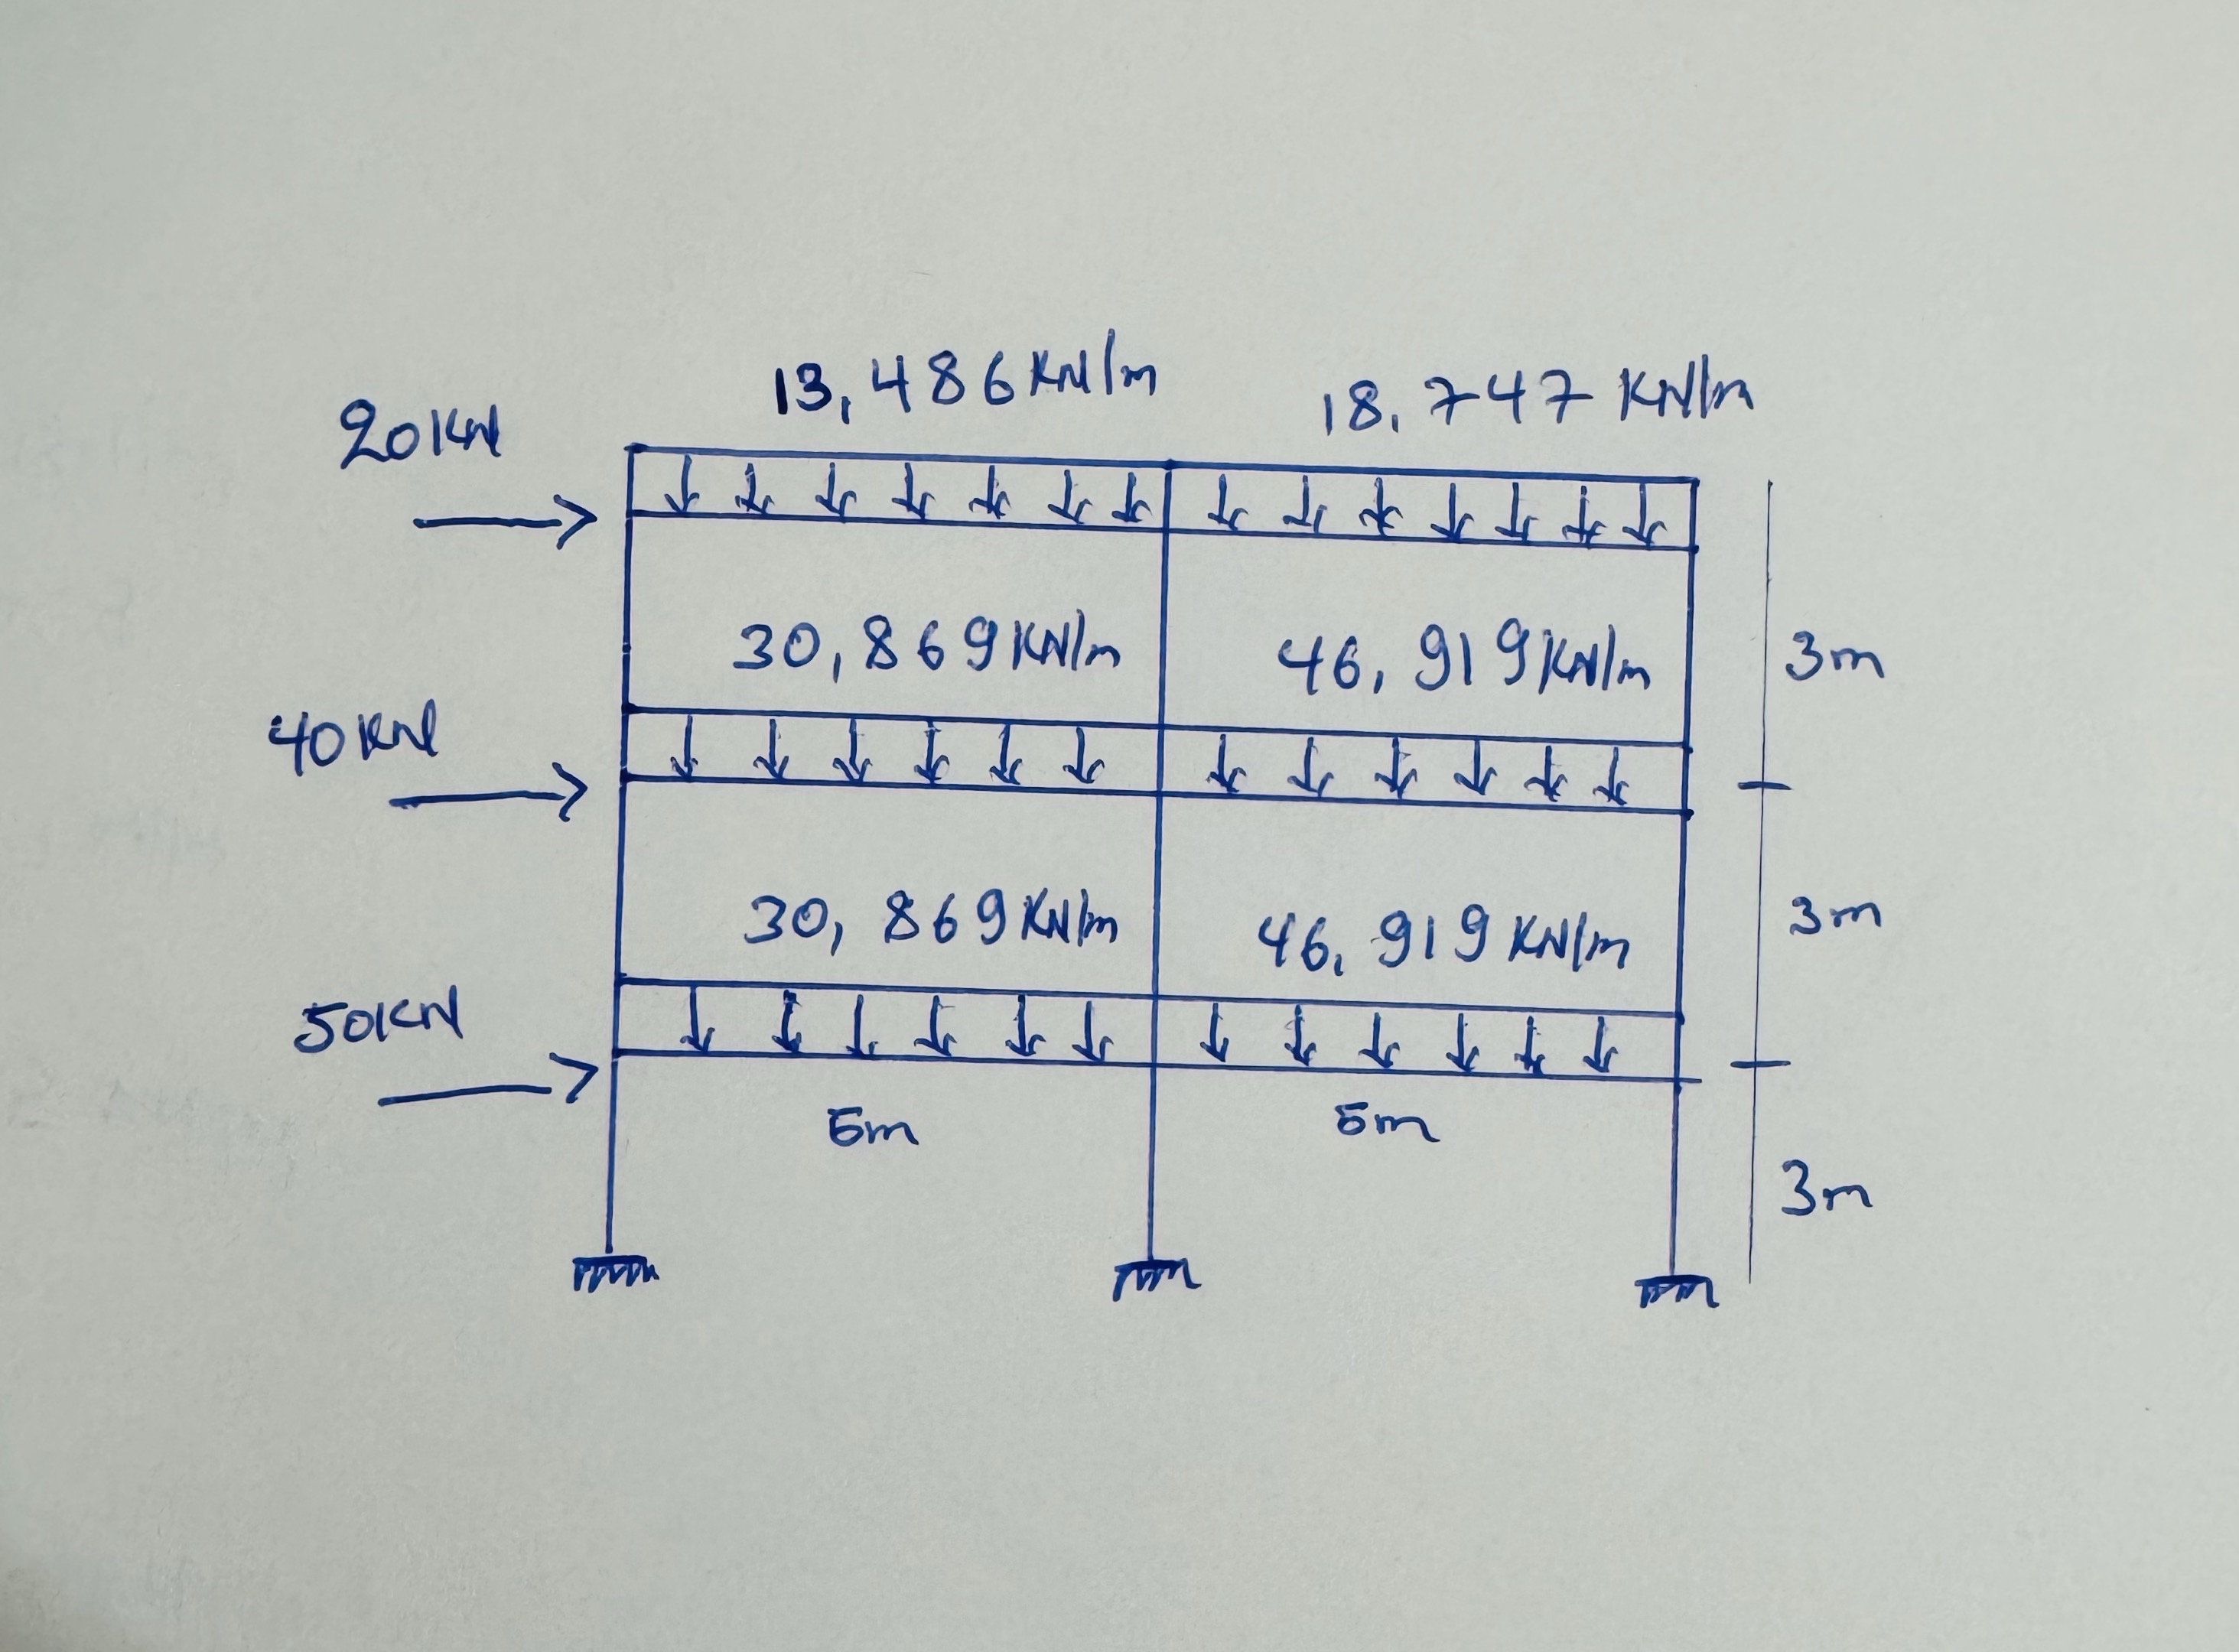 13,486 KN/m
18.747 KN/m
20KN
30,869 KN/m
46,919 KN/m
3m
40KN
30,869 KN/m
46.919 KN/m
3m
50KN
5m
5m
3m